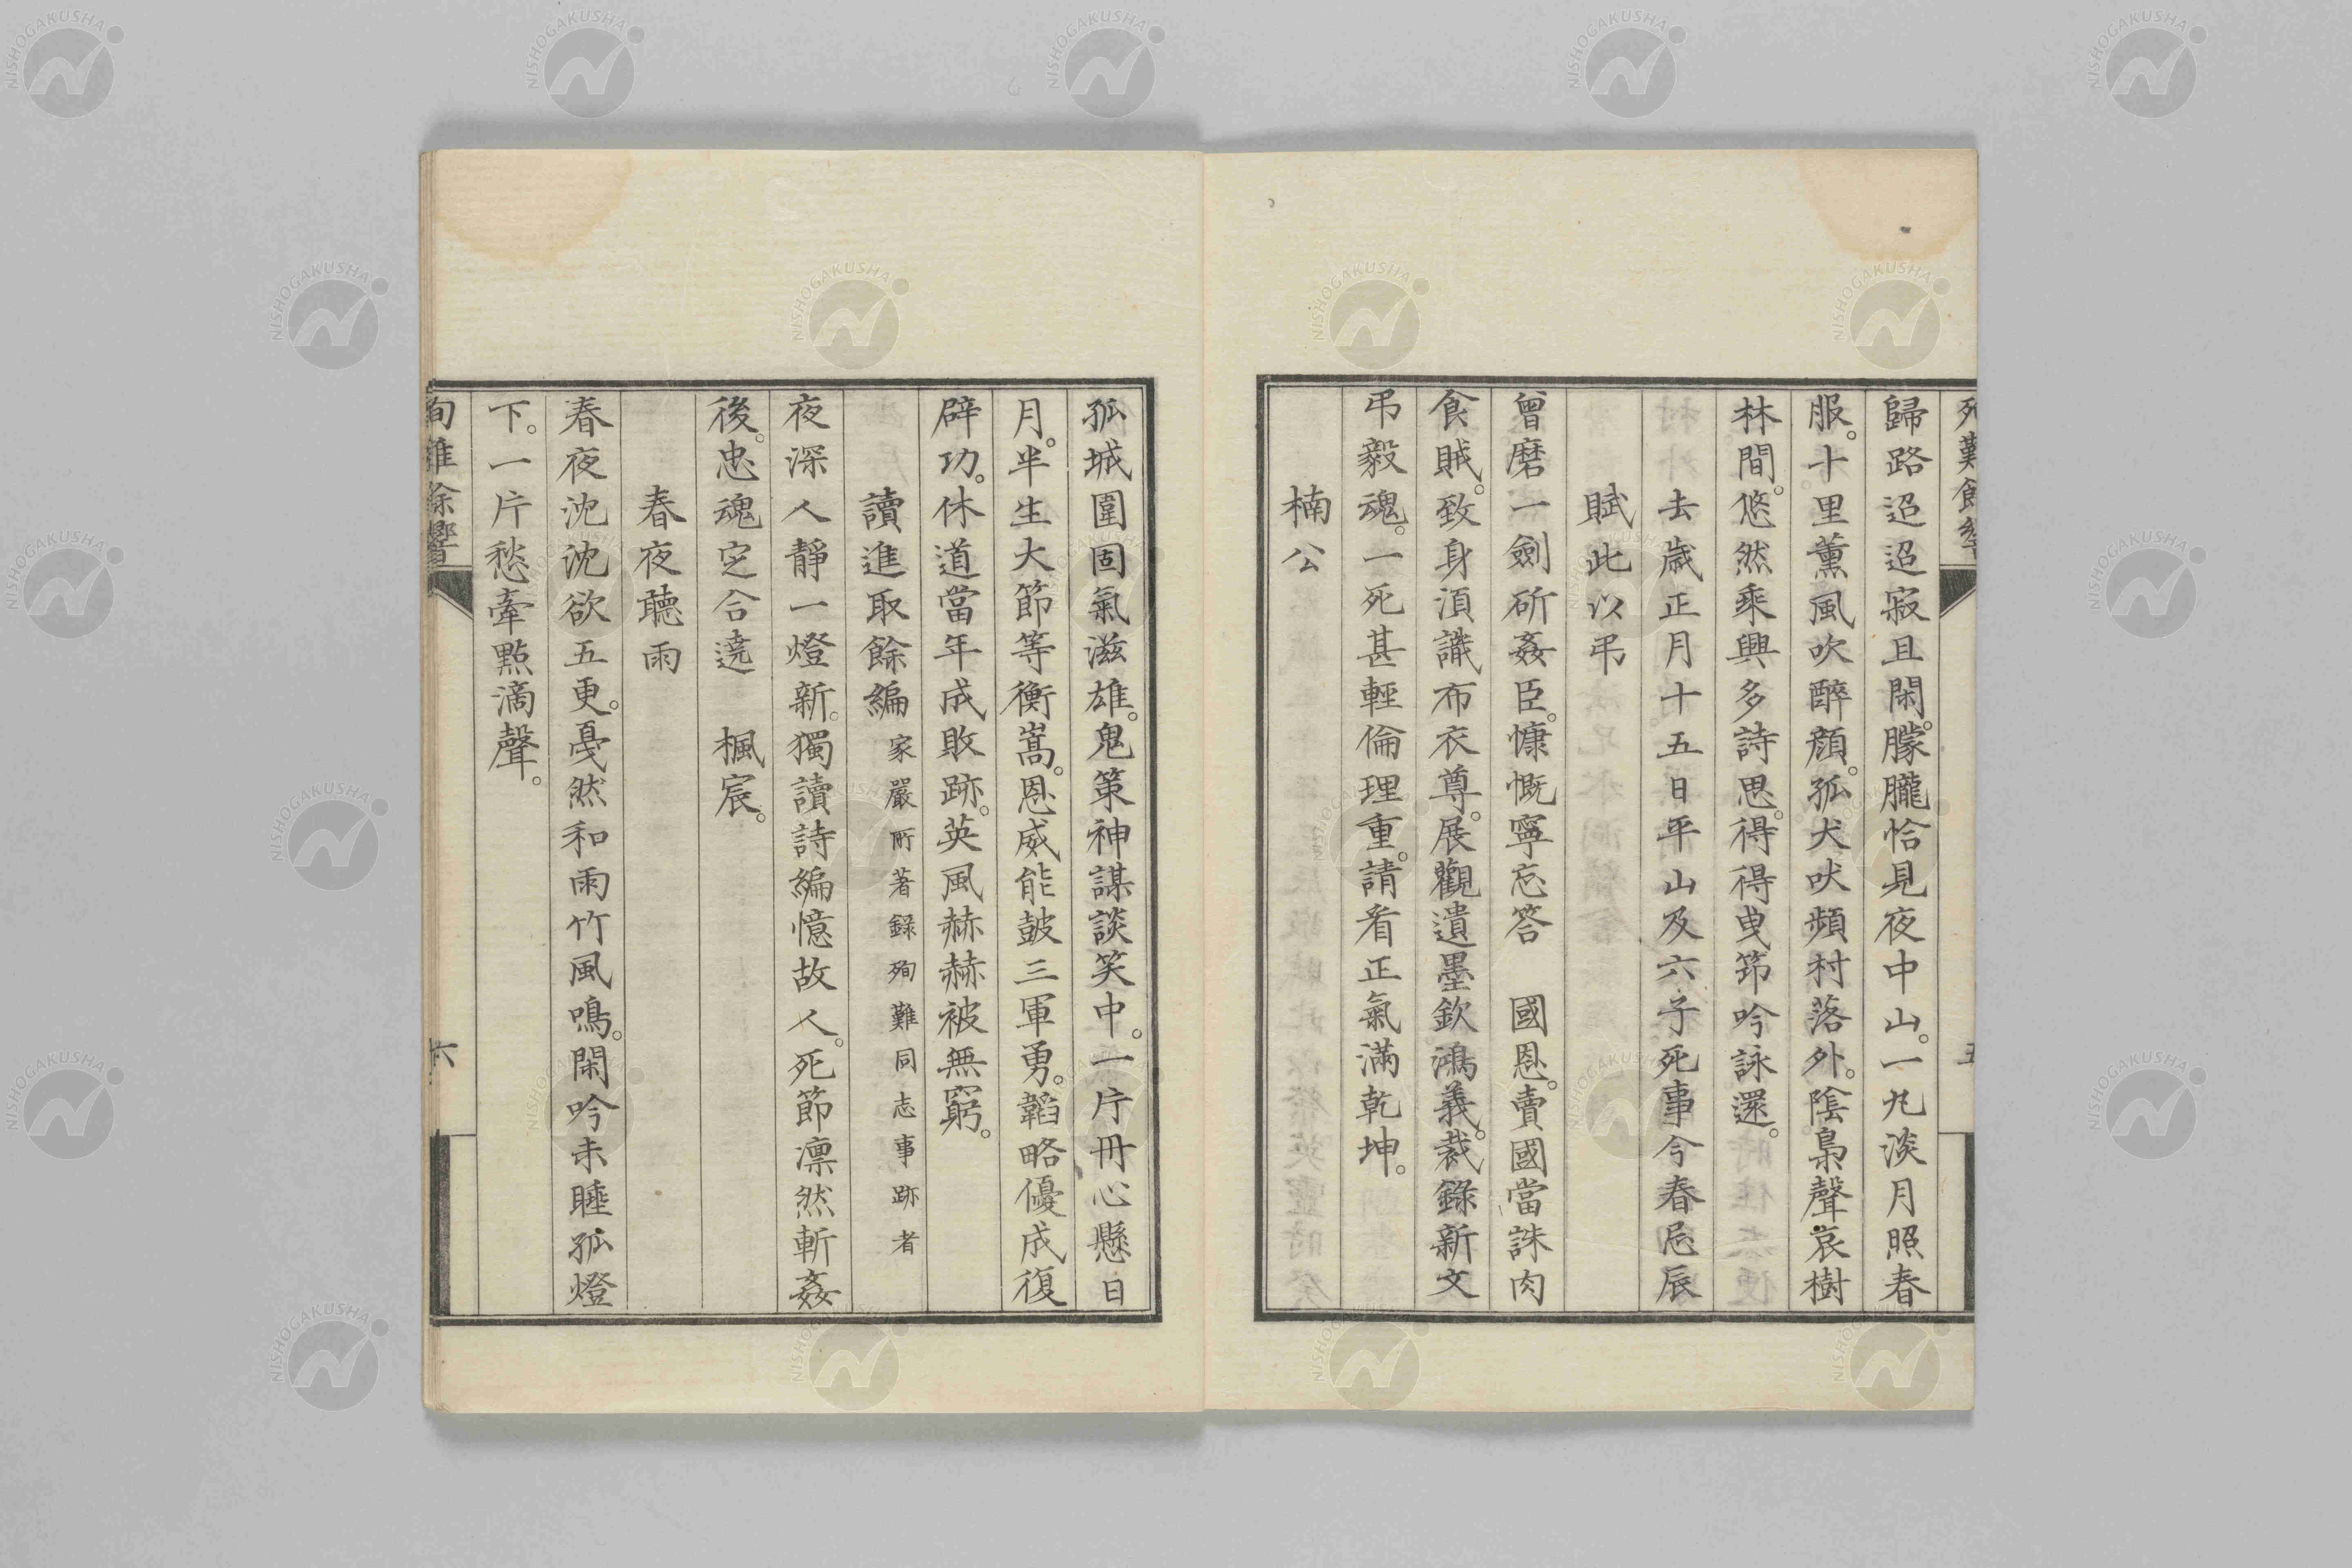 歸路迢迢寂且閑。朦朧恰見夜中山。一丸淡月照春
服。十里薫風吹醉顔。孤犬吠頻村落外。陰梟聲哀樹
林間。悠然乘興多詩思。得得曳笻吟詠還。
去歳正月十五日平山及六子死事今春忌辰
賦此以弔
曾磨一劍斫姦臣。慷慨寧忘答 國恩。賣國當誅肉
食賊。致身須識布衣尊。展觀遺墨欽鴻義。裁錄新文
弔毅魂。一死甚輕倫理重。請看正氣滿乾坤。
楠公
孤城圍固氣滋雄。鬼策神謀談笑中。一片丹心懸日
月。半生大節等衡嵩。恩威能皷三軍勇。韜略優成復
辟功。休道當年成敗跡。英風赫赫被無窮。
讀進取餘編 家嚴所著録殉難同志事跡者
夜深人靜一燈新。獨讀詩編憶故人。死節凛然斬姦
後。忠魂定合遶 楓宸。
春夜聽雨
春夜沈沈欲五更。戞然和雨竹風鳴。閑吟未睡孤燈
下。一片愁牽點滴聲。
六
NISHOGAKUSHA